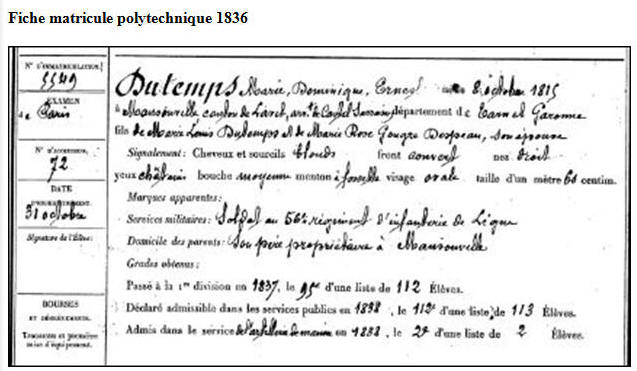 Fiche matricule polytechnique 1836
N° D'IMMATRICULATION.
5549
EXAMEN
de Paris
N° D'ADMISSION,
72
DATE
31 octobre
Signature de l'Élève:
BOURSES
ET DÉGRÈVEMENTS.
Trousseaux et première
mise d'équipement.
Dutemps Marie, Dominique, Ernest né le 8 octobre 1815
à Mansonville canton de Lavit, arr.t de Castel Sarrasin département de Tarn et Garonne
fils de Marie Louis Dutemps et de Marie Rose Gouges Despeau, son épouse
Signalement: Cheveux et sourcils blonds front couvert nez droit
yeux châtain bouche moyenne menton à fossette visage ovale taille d'un mètre 60 centim.
Marques apparentes:
Services militaires: Soldat au 56e régiment d'infanterie de Ligne
Domicile des parents: Son père propriétaire à Mansonville
Grades obtenus:
Passé à la 1re division en 1837, le 95e d'une liste de 112 Élèves.
Déclaré admissible dans les services publics en 1838, le 112e d'une liste de 113 Élèves.
Admis dans le service de l'artillerie de marine en 1838, le 2e d'une liste de 2 Élèves.